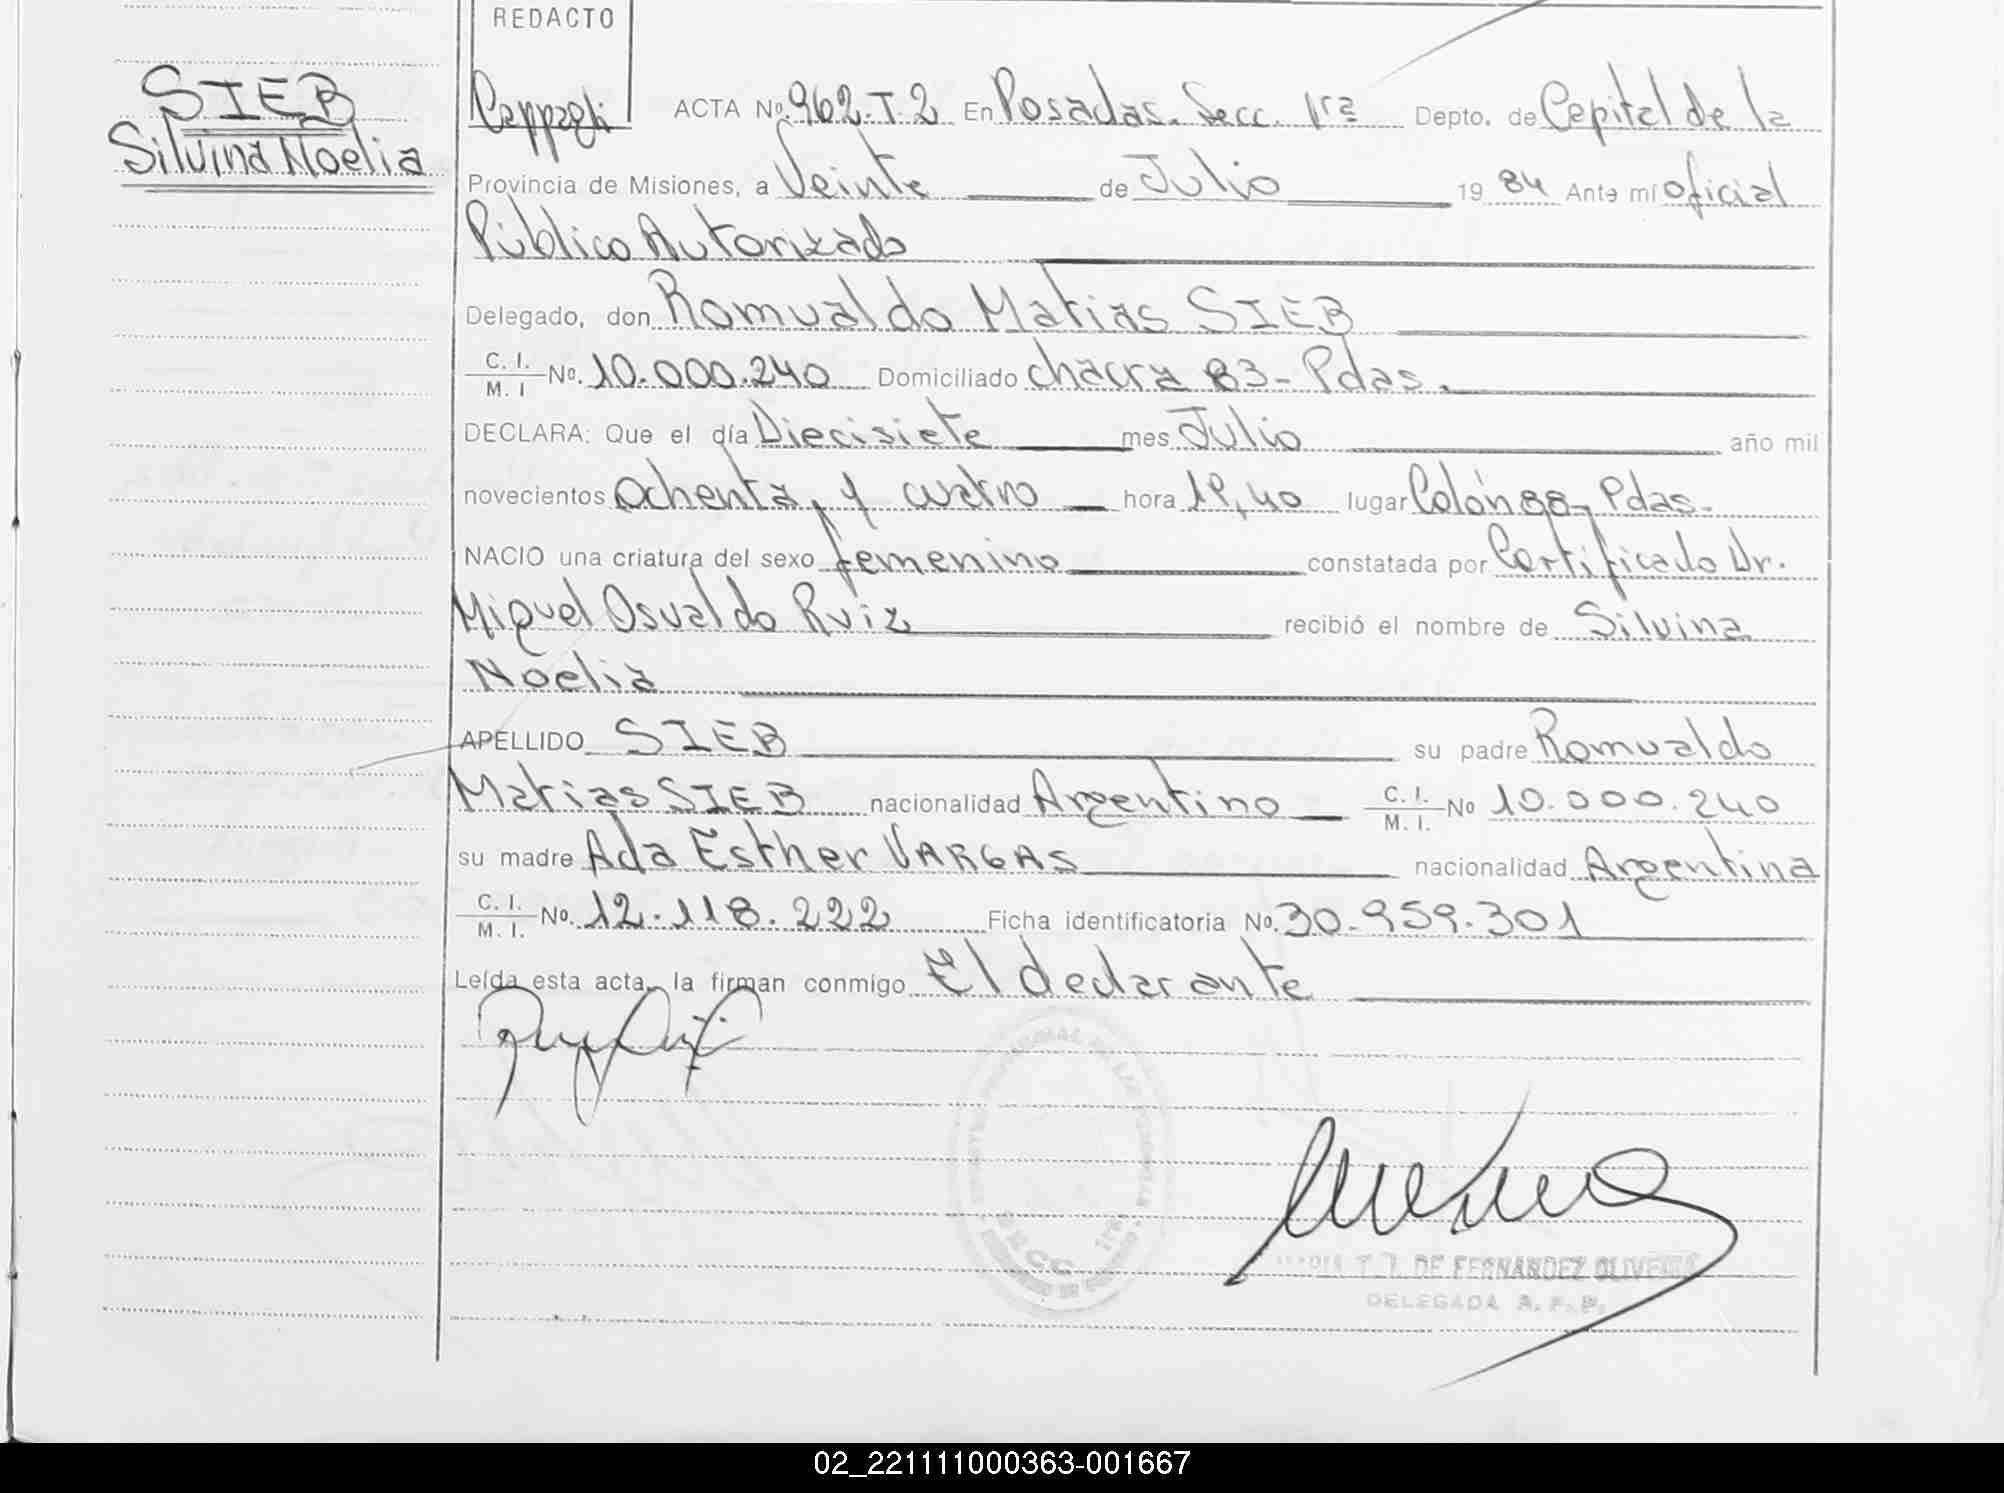 REDACTO
SIEB
Silvina Noelia
Cappagli
ACTA Nº 962-T.2 En Posadas. Secc. 1ra Depto. de Capital de la
Provincia de Misiones, a Veinte de Julio 19 84 Ante mí oficial
Público Autorizado
Delegado, don Romualdo Matias SIEB
C. I. / M. I. Nº. 10.000.240 Domiciliado chacra 83 - Pdas.
DECLARA: Que el día Diecisiete mes Julio año mil
novecientos ochenta y cuatro hora 19,40 lugar Colón 88 - Pdas.
NACIO una criatura del sexo femenino constatada por Certificado Dr.
Miguel Osvaldo Ruiz recibió el nombre de Silvina
Noelia
APELLIDO SIEB su padre Romualdo
Matias SIEB nacionalidad Argentino C. I. / M. I. Nº 10.000.240
su madre Ada Esther VARGAS nacionalidad Argentina
C. I. / M. I. Nº. 12.118.222 Ficha identificatoria Nº. 30.959.301
Leída esta acta, la firman conmigo El declarante
T. J. DE FERNANDEZ OLIVEIRA
DELEGADA R. P. P.
02_221111000363-001667